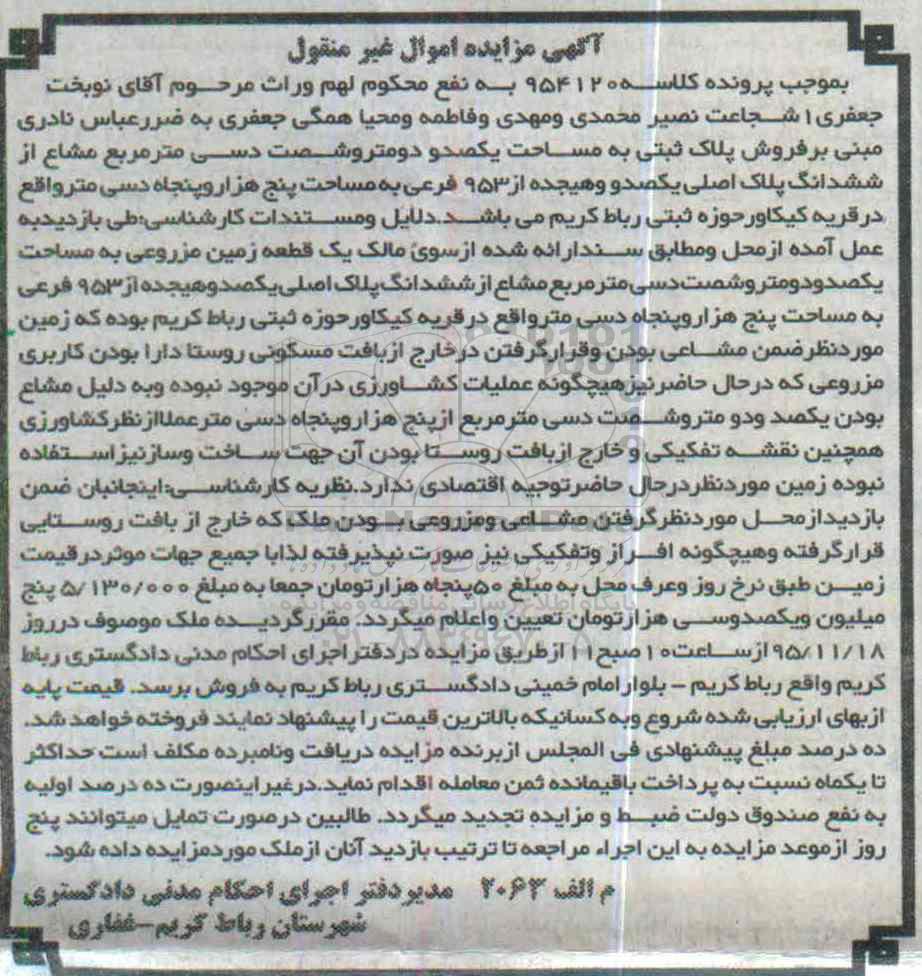 آگهی مزایده اموال غیر منقول
بموجب پرونده کلاسه ۹۵۴۱۲۰ به نفع محکوم لهم وراث مرحوم آقای نوبخت
جعفری۱ شجاعت نصیر محمدی ومهدی وفاطمه ومحیا همگی جعفری به ضررعباس نادری
مبنی برفروش پلاک ثبتی به مساحت یکصدو دومتروشصت دسی مترمربع مشاع از
ششدانگ پلاک اصلی یکصدو وهیجده از۹۵۳ فرعی به مساحت پنج هزاروپنجاه دسی مترواقع
درقریه کیکاورحوزه ثبتی رباط کریم می باشد.دلایل ومستندات کارشناسی:طی بازدیدبه
عمل آمده ازمحل ومطابق سندارائه شده ازسوئ مالک یک قطعه زمین مزروعی به مساحت
یکصدودومتروشصت‌دسی مترمربع مشاع ازششدانگ پلاک اصلی یکصدوهیجده از۹۵۳ فرعی
به مساحت پنج هزاروپنجاه دسی مترواقع درقریه کیکاورحوزه ثبتی رباط کریم بوده که زمین
موردنظرضمن مشاعی بودن وقرارگرفتن درخارج ازبافت مسکونی روستا دارا بودن کاربری
مزروعی که درحال حاضرنیزهیچگونه عملیات کشاورزی درآن موجود نبوده وبه دلیل مشاع
بودن یکصد ودو متروشصت دسی مترمربع ازپنج هزاروپنجاه دسی مترعملاازنظرکشاورزی
همچنین نقشه تفکیکی و خارج ازبافت روستا بودن آن جهت ساخت وسازنیزاستفاده
نبوده زمین موردنظردرحال حاضرتوجیه اقتصادی ندارد.نظریه کارشناسی:اینجانبان ضمن
بازدیدازمحل موردنظرگرفتن مشاعی ومزروعی بودن ملک که خارج از بافت روستایی
قرارگرفته وهیچگونه افراز وتفکیکی نیز صورت نپذیرفته لذابا جمیع جهات موثردرقیمت
زمین طبق نرخ روز وعرف محل به مبلغ ۵۰پنجاه هزارتومان جمعا به مبلغ ۵/۱۳۰/۰۰۰ پنج
میلیون ویکصدوسی هزارتومان تعیین واعلام میگردد. مقررگردیده ملک موصوف درروز
۹۵/۱۱/۱۸ ازساعت۱۰صبح۱۱ازطریق مزایده دردفتراجرای احکام مدنی دادگستری رباط
کریم واقع رباط کریم - بلوارامام خمینی دادگستری رباط کریم به فروش برسد. قیمت پایه
ازبهای ارزیابی شده شروع وبه کسانیکه بالاترین قیمت را پیشنهاد نمایند فروخته خواهد شد.
ده درصد مبلغ پیشنهادی فی المجلس ازبرنده مزایده دریافت ونامبرده مکلف است حداکثر
تا یکماه نسبت به پرداخت باقیمانده ثمن معامله اقدام نماید.درغیراینصورت ده درصد اولیه
به نفع صندوق دولت ضبط و مزایده تجدید میگردد. طالبین درصورت تمایل میتوانند پنج
روز ازموعد مزایده به این اجراء مراجعه تا ترتیب بازدید آنان ازملک موردمزایده داده شود.
م الف ۲۰۶۳ مدیردفتر اجرای احکام مدنی دادگستری
شهرستان رباط کریم-غفاری